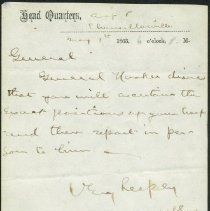 Head Quarters, A of P
Chancellorsville
May 1st 1863. o'clock, M.
General
General Hooker directs
that you will ascertain the
exact position of your troops
and then report in per-
son to him.
Very Respfly